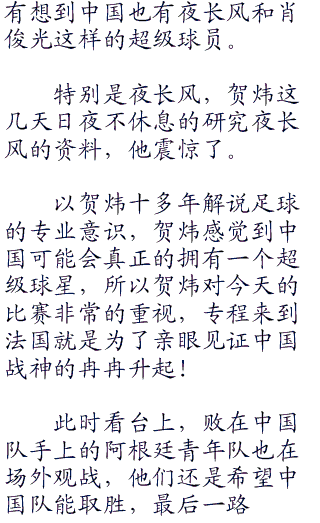 有想到中国也有夜长风和肖
俊光这样的超级球员。
特别是夜长风，贺炜这
几天日夜不休息的研究夜长
风的资料，他震惊了。
以贺炜十多年解说足球
的专业意识，贺炜感觉到中
国可能会真正的拥有一个超
级球星，所以贺炜对今天的
比赛非常的重视，专程来到
法国就是为了亲眼见证中国
战神的冉冉升起！
此时看台上，败在中国
队手上的阿根廷青年队也在
场外观战，他们还是希望中
国队能取胜，最后一路